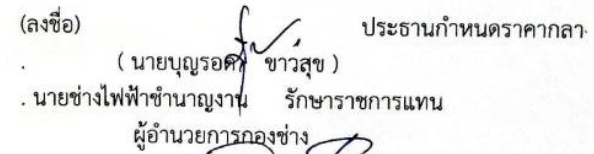 (ลงชื่อ) ประธานกำหนดราคากลา
. ( นายบุญรอด ขาวสุข )
. นายช่างไฟฟ้าชำนาญงาน รักษาราชการแทน
ผู้อำนวยการกองช่าง